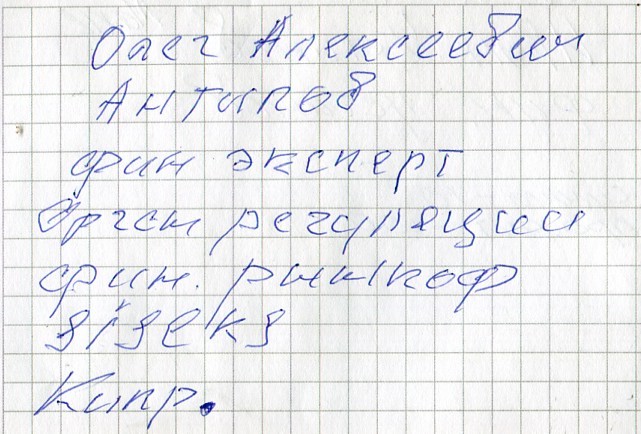 Олег Алексеевич
Антипов
фин эксперт
Орган регуляции
фин. рынкоф
Кипр.